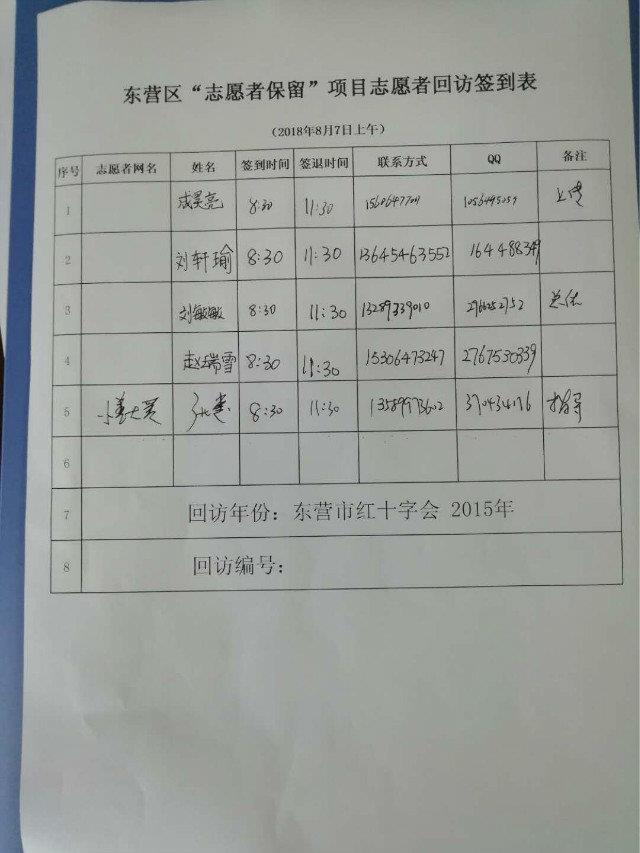 东营区“志愿者保留”项目志愿者回访签到表
（2018年8月7日上午）
序号 志愿者网名 姓名 签到时间 签退时间 联系方式 QQ 备注
1 成昊亮 8:30 11:30 上传
2 刘轩瑜 8:30 11:30 13645463552 164488349
3 刘敏敏 8:30 11:30 13289339010 276252752 总结
4 赵瑞雪 8:30 11:30 15306473247 2767530339
5 8:30 11:30 13589973602 370434176 指导
6
7 回访年份：东营市红十字会 2015年
8 回访编号：